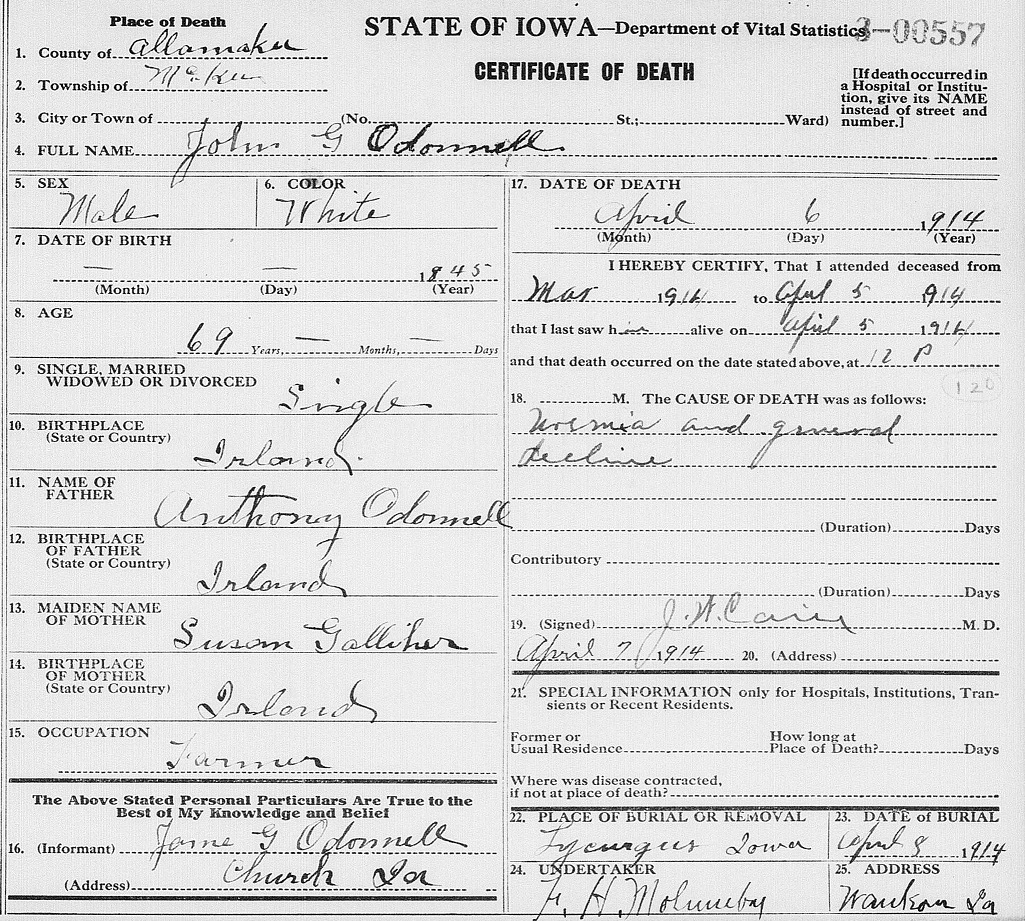 Place of Death
STATE OF IOWA—Department of Vital Statistics 3-00557
1. County of Allamakee
CERTIFICATE OF DEATH
2. Township of
[If death occurred in
a Hospital or Institu-
tion, give its NAME
instead of street and
number.]
3. City or Town of (No. St.; Ward)
4. FULL NAME John G Odonnell
5. SEX
Male
6. COLOR
White
7. DATE OF BIRTH
— — 1845
(Month) (Day) (Year)
8. AGE
69 Years, — Months, — Days
9. SINGLE, MARRIED
WIDOWED OR DIVORCED
Single
10. BIRTHPLACE
(State or Country)
Irland
11. NAME OF
FATHER
Anthony Odonnell
12. BIRTHPLACE
OF FATHER
(State or Country)
Irland
13. MAIDEN NAME
OF MOTHER
Susan Galliher
14. BIRTHPLACE
OF MOTHER
(State or Country)
Irland
15. OCCUPATION
Farmer
The Above Stated Personal Particulars Are True to the
Best of My Knowledge and Belief
16. (Informant) Jame G Odonnell
(Address) Church Ia
17. DATE OF DEATH
April 6 1914
(Month) (Day) (Year)
I HEREBY CERTIFY, That I attended deceased from
Mar 1914 to April 5 1914
that I last saw him alive on April 5 1914
and that death occurred on the date stated above, at 12 P
120
18. M. The CAUSE OF DEATH was as follows:
Uremia and general
decline
(Duration) Days
Contributory
(Duration) Days
19. (Signed) J. W. M. D.
April 7 1914 20. (Address)
21. SPECIAL INFORMATION only for Hospitals, Institutions, Tran-
sients or Recent Residents.
Former or
Usual Residence
How long at
Place of Death? Days
Where was disease contracted,
if not at place of death?
22. PLACE OF BURIAL OR REMOVAL
Lycurgus Iowa
23. DATE OF BURIAL
April 8 1914
24. UNDERTAKER
F. H. Molumby
25. ADDRESS
Waukon Ia